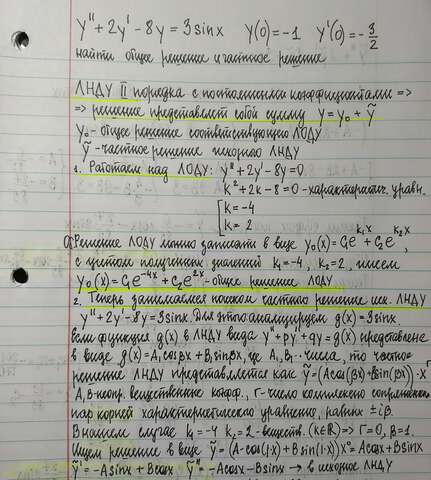 y'' + 2y' - 8y = 3sinx   y(0) = -1   y'(0) = -3/2
найти общее решение и частное решение
ЛНДУ II порядка с постоянными коэффициентами =>
=> решение представляет собой сумму y = y₀ + ỹ
y₀ - общее решение соответствующего ЛОДУ
ỹ - частное решение искомого ЛНДУ
1. Работаем над ЛОДУ: y'' + 2y' - 8y = 0
k² + 2k - 8 = 0 - характеристич. уравн.
[k = -4
[k = 2
Решение ЛОДУ можно записать в виде y₀(x) = C₁e^{k₁x} + C₂e^{k₂x},
с учетом полученных значений k₁ = -4, k₂ = 2, имеем
y₀(x) = C₁e^{-4x} + C₂e^{2x} - общее решение ЛОДУ
2. Теперь занимаемся поиском частного решения исх. ЛНДУ
y'' + 2y' - 8y = 3sinx. Для этого анализируем g(x) = 3sinx.
Если функция g(x) в ЛНДУ вида y'' + py' + qy = g(x) представлена
в виде g(x) = A₁cosβx + B₁sinβx, где A₁, B₁ - числа, то частное
решение ЛНДУ представляется как ỹ = (Acos(βx) + Bsin(βx))·x^r
A, B - неопр. вещественные коэфф., r - число комплексно сопряженных
пар корней характеристического уравнения, равных ±iβ.
В нашем случае k₁ = -4 k₂ = 2 - веществ. (k∈R) => r = 0, β = 1.
Ищем решение в виде ỹ = (A·cos(1·x) + Bsin(1·x))x⁰ = Acosx + Bsinx
ỹ' = -Asinx + Bcosx   ỹ'' = -Acosx - Bsinx → в исходное ЛНДУ